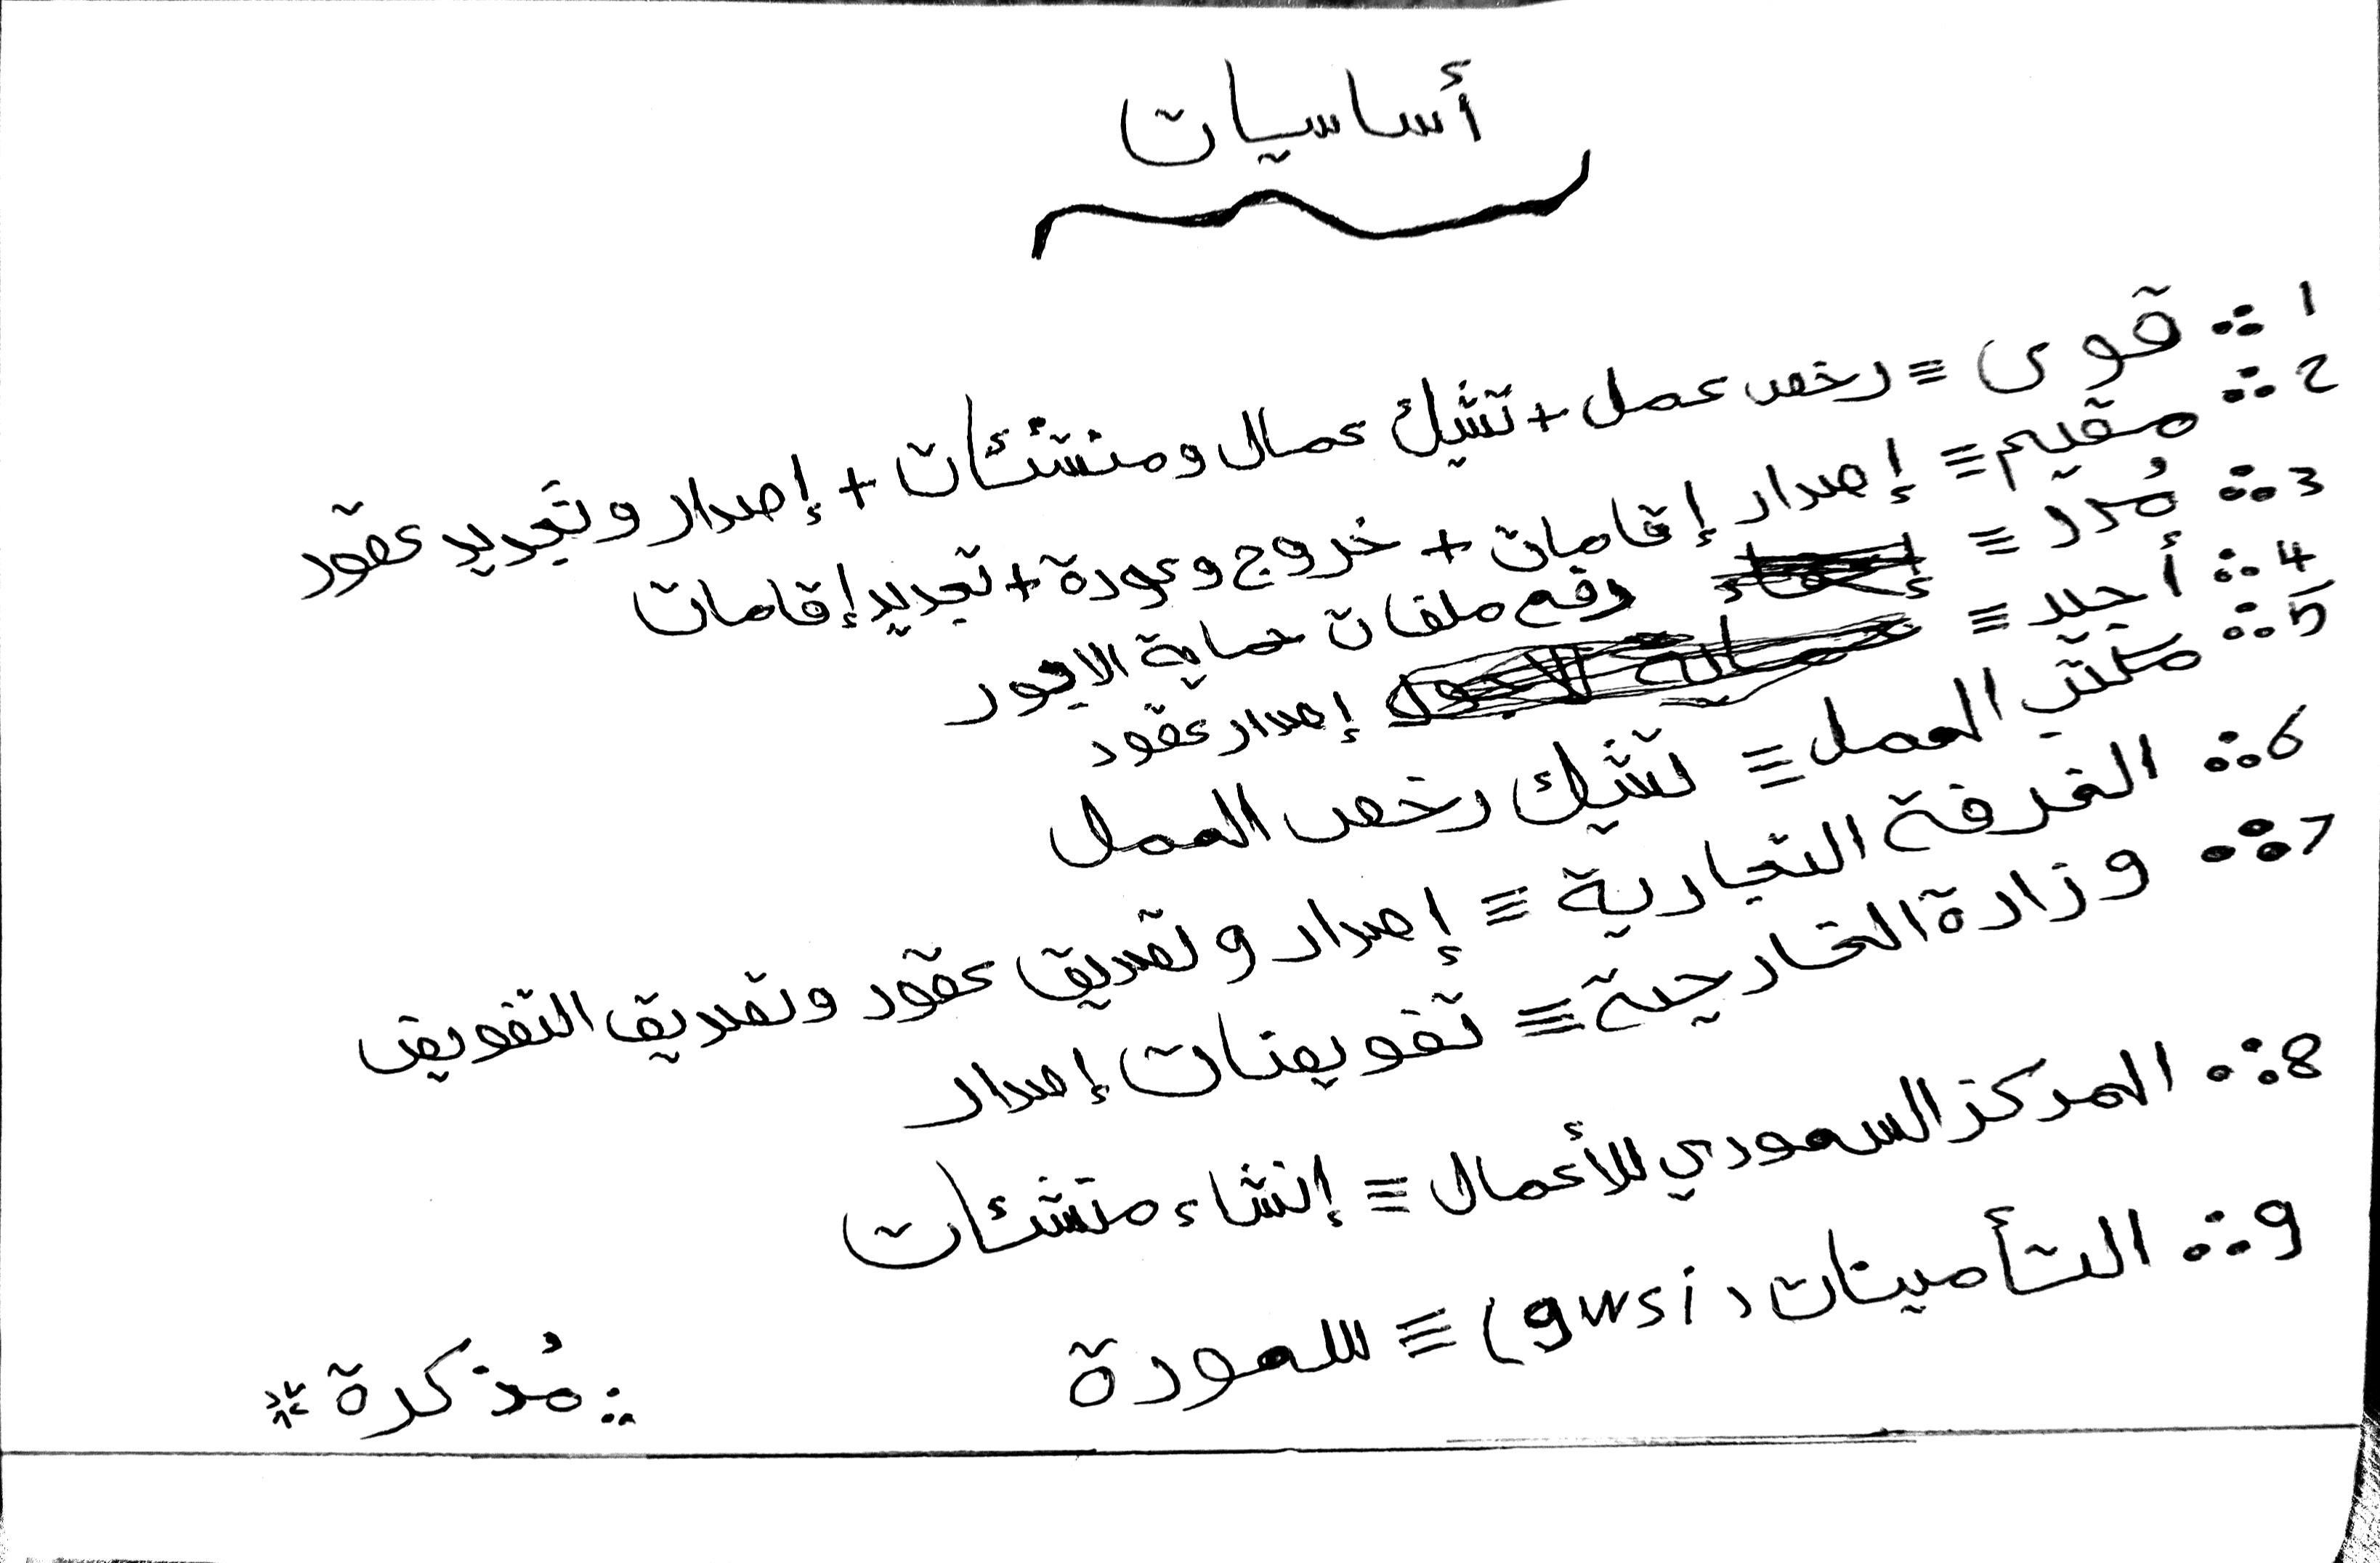 أساسيات
1 ∴ قوى ≡ رخص عمل + تشيك عمال ومنشئات + إصدار وتجديد عقود
2 ∴ مقيم ≡ إصدار إقامات + خروج وعودة + تجديد إقامات
3 ∴ مُدد ≡ رفع ملفات حماية الاجور
4 ∴ أجير ≡ إصدار عقود
5 ∴ مكتب العمل ≡ تشيك رخص العمل
6 ∴ الغرفة التجارية ≡ إصدار وتصديق عقود وتصديق التفويض
7 ∴ وزارة الخارجية ≡ تفويضات إصدار
8 ∴ المركز السعودي للأعمال ≡ إنشاء منشئات
9 ∴ التأمينات (gwsi) ≡ سعودة
∴ مُذكرة *